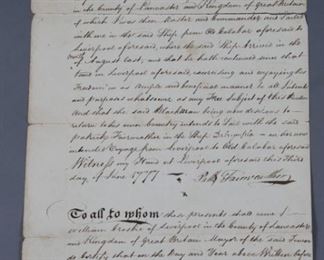 in the County of Lancaster and Kingdom of Great Britain
of which I was then Master and Commander and Sailed
in the said Ship from Old Calabar aforesaid to
Liverpool aforesaid, where the said Ship Arrived in the
of August last, and that he hath continued since that
time in Liverpool aforesaid, exercising and enjoying his
Freedom in as Ample and beneficial manner to all Intents
and purposes whatsoever as any Free Subject of this
And that the said Blackman being now desirous to
return to his own Country intends to Sail with the said
Patrick Fairweather in the Ship on her now
intended Voyage from Liverpool to Old Calabar aforesaid
Witness my Hand at Liverpool aforesaid this Third
day of June 1777 Patk Fairweather
To all to whom these presents shall come I
William Crosbie of Liverpool in the County of Lancaster
and Kingdom of Great Britain Mayor of the said Town
do Certify that on the Day and Year above Written before